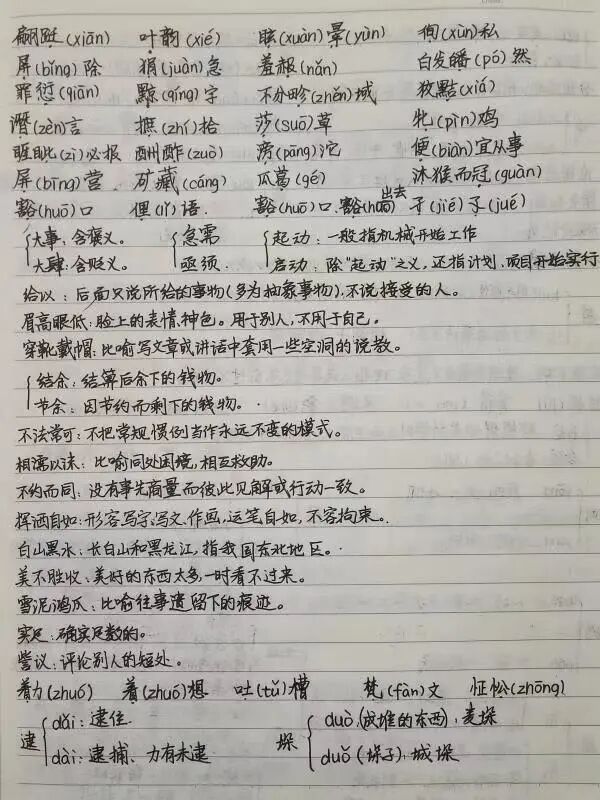 翩跹(xiān) 叶韵(xié) 眩(xuàn)晕(yùn) 徇(xùn)私
屏(bǐng)除 狷(juàn)急 羞赧(nǎn) 白发皤(pó)然
罪愆(qiān) 黥(qíng)字 不分畛(zhěn)域 狡黠(xiá)
谮(zèn)言 摭(zhí)拾 莎(suō)草 牝(pìn)鸡
睚眦(zì)必报 酬酢(zuò) 滂(pāng)沱 便(biàn)宜从事
屏(bīng)营 矿藏(cáng) 瓜葛(gé) 沐猴而冠(guàn)
豁(huō)口 俚(lǐ)语 豁(huō)口.豁(huō)出去 孑(jié)孓(jué)
大事:含褒义。 急需 起动:一般指机械开始工作
大肆:含贬义。 亟须. 启动:除"起动"之义,还指计划、项目开始实行
给以:后面只说所给的事物(多为抽象事物),不说接受的人。
眉高眼低:脸上的表情、神色。用于别人,不用于自己。
穿靴戴帽:比喻写文章或讲话中套用一些空洞的说教。
结余:结算后余下的钱物。
节余:因节约而剩下的钱物。
不法常可:不把常规惯例当作永远不变的模式。
相濡以沫:比喻同处困境,相互救助。
不约而同:没有事先商量而彼此见解或行动一致。
挥洒自如:形容写字、写文、作画,运笔自如,不容拘束。
白山黑水:长白山和黑龙江,指我国东北地区。
美不胜收:美好的东西太多,一时看不过来。
雪泥鸿爪:比喻往事遗留下的痕迹。
实足:确实足数的。
訾议:评论别人的短处。
着力(zhuó) 着(zhuó)想 吐(tǔ)槽 梵(fàn)文 怔忪(zhōng)
逮 dǎi:逮住 垛 duò.(成堆的东西),麦垛
dài:逮捕、力有未逮 duǒ(垛子),城垛